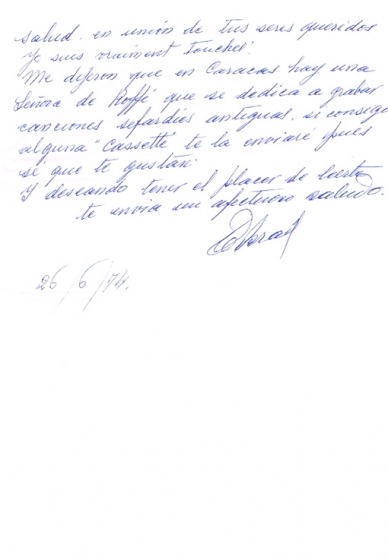 salud. en unión de tus seres queridos
Je suis vraiment touchée!
Me dijeron que en Caracas hay una
Señora de Roffé que se dedica a grabar
canciones sefardies antiguas, si consigo
alguna "Cassette" te la enviaré pues
sé que te gustará
Y deseando tener el placer de leerte
te envia un afectuoso saludo.
26/6/74.